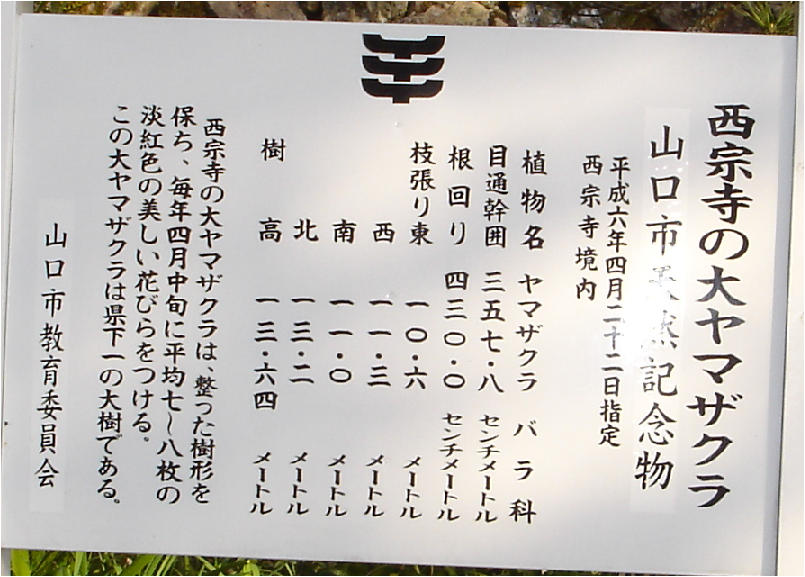 西宗寺の大ヤマザクラ
山口市天然記念物
平成六年四月二十二日指定
西宗寺境内
植物名 ヤマザクラ バラ科
目通幹囲 三五七・八 センチメートル
根回り 四三〇・〇 センチメートル
枝張り東 一〇・六 メートル
西 一一・三 メートル
南 一一・〇 メートル
北 一三・二 メートル
樹高 一三・六四 メートル
西宗寺の大ヤマザクラは、整った樹形を
保ち、毎年四月中旬に平均七〜八枚の
淡紅色の美しい花びらをつける。
この大ヤマザクラは県下一の大樹である。
山口市教育委員会